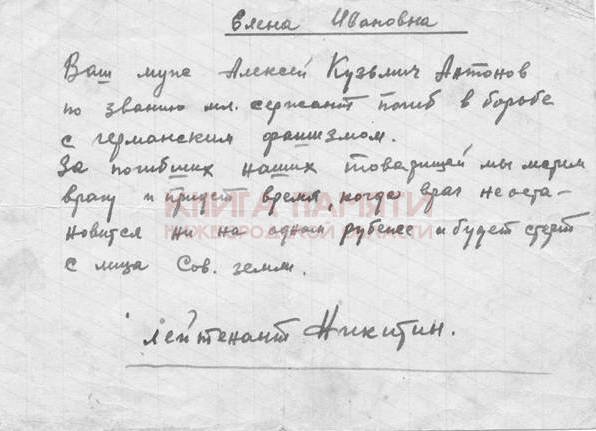 Елена Ивановна
Ваш муж Алексей Кузьмич Антонов
по званию мл. сержант погиб в борьбе
с германским фашизмом.
За погибших наших товарищей мы мстим
врагу и придет время, когда враг не оста-
КНИГА ПАМЯТИ
новится ни на одном рубеже и будет стерт
НИЖЕГОРОДСКОЙ ОБЛАСТИ
с лица Сов. земли.
лейтенант Никитин.